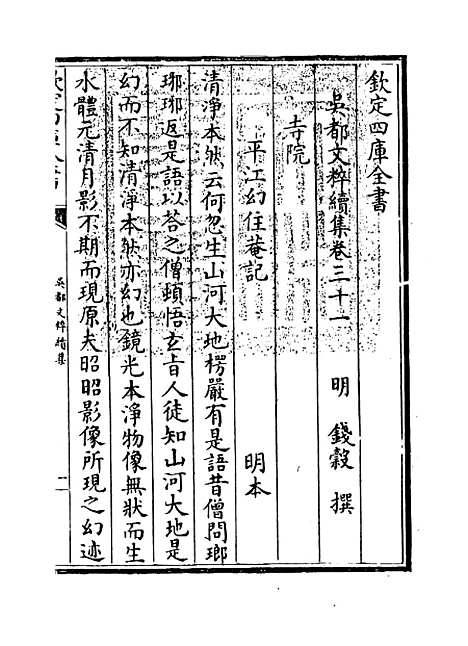 欽定四庫全書
吳都文粹續集卷三十一
明 錢穀 撰
寺院
平江幻住菴記 明本
清淨本然云何忽生山河大地楞嚴有是語昔僧問瑯
琊琊返是語以答之僧頓悟玄旨人徒知山河大地是
幻而不知清淨本然亦幻也鏡光本淨物像無狀而生
水體元清月影不期而現原夫昭昭影像所現之幻迹
欽定四庫全書
吳都文粹續集
一